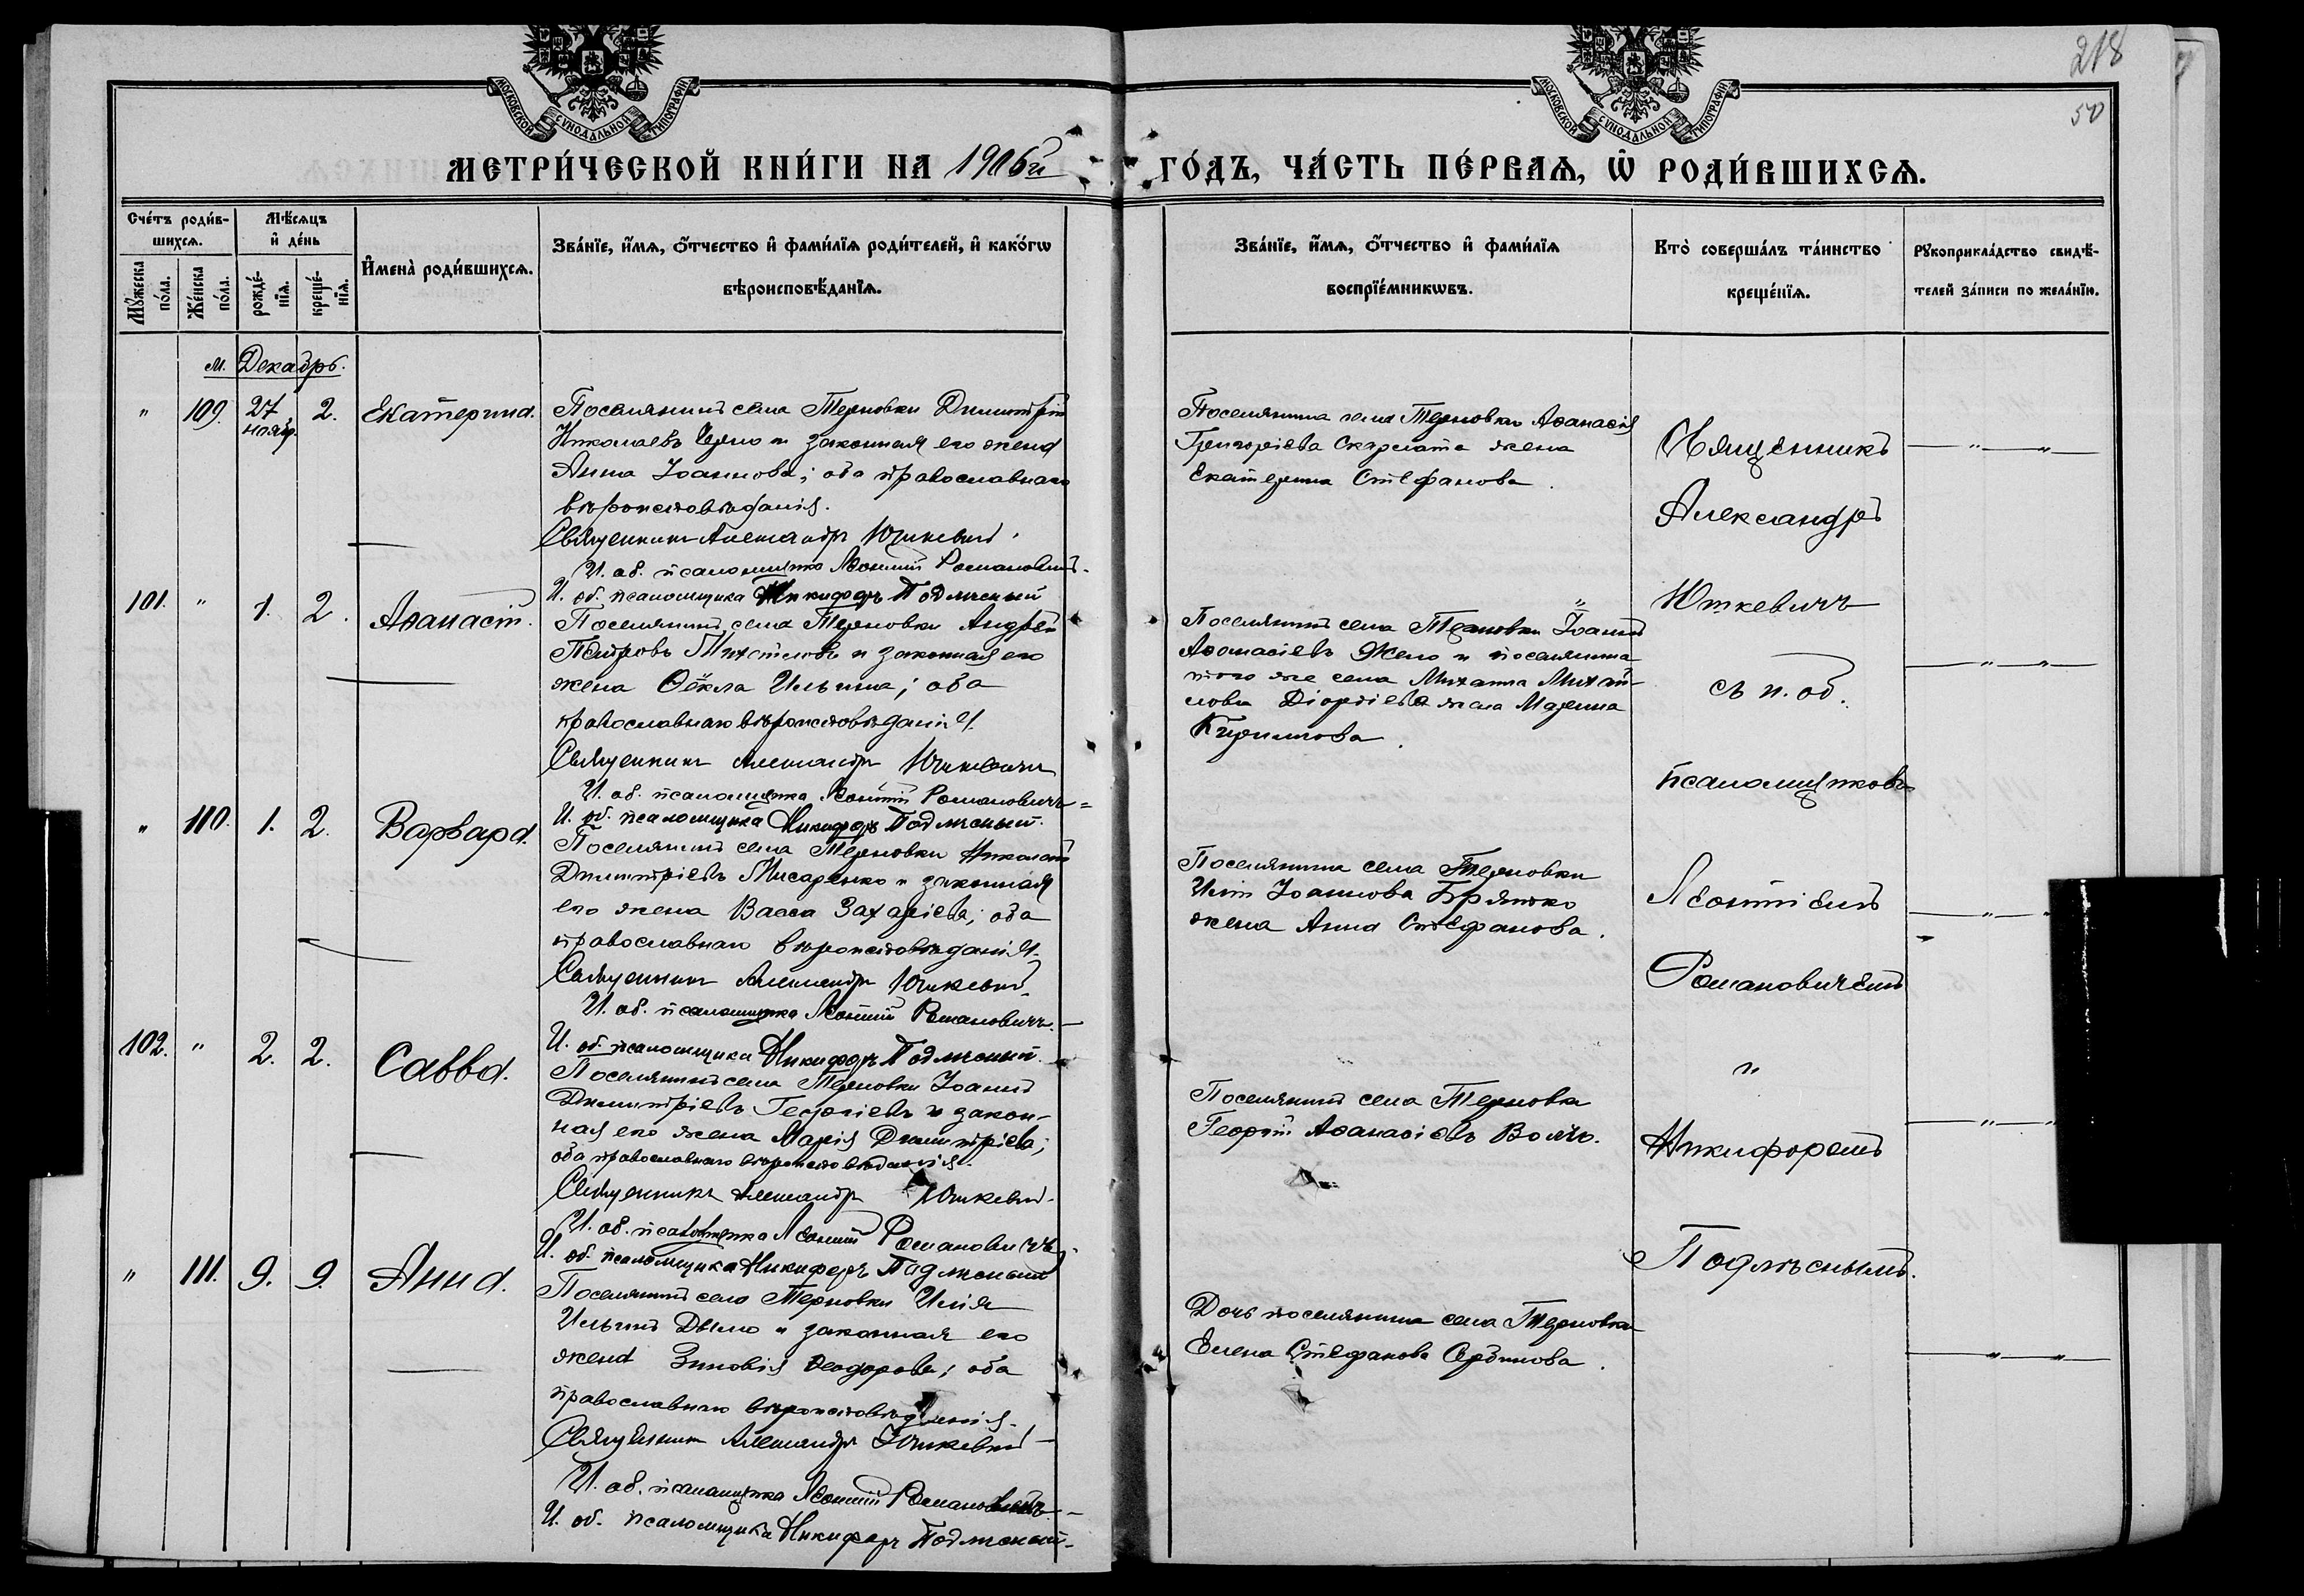 218
50
МОСКОВСКОЙ СѴНОДАЛЬНОЙ ТИПОГРАФІИ
МОСКОВСКОЙ СѴНОДАЛЬНОЙ ТИПОГРАФІИ
МЕТРИ́ЧЕСКОЙ КНИ́ГИ НА 1906й ГО́ДЪ, ЧА́СТЬ ПЕ́РВАѦ, Ѽ РОДИ́ВШИХСѦ.
Сче́тъ роди́в-
шихсѧ.
Мꙋ́жеска по́ла.
Же́нска по́ла.
Мѣ́сѧцъ
и҆ де́нь
рожде́-
нїѧ.
креще́-
нїѧ.
И҆мена̀ роди́вшихсѧ.
Зва́нїе, и҆́мѧ, ѻ҆́тчество и҆ фами́лїѧ роди́телей, и҆ како́гѡ
вѣроисповѣ́данїѧ.
Зва́нїе, и҆́мѧ, ѻ҆́тчество и҆ фами́лїѧ
воспрїе́мникѡвъ.
Кто̀ соверша́лъ та́инство
креще́нїѧ.
Рꙋкоприкла́дство свидѣ́-
телей за́писи по жела́нїю.
м. Декабрь.
" 109. 27 нояб. 2. Екатерина.
Поселянинъ села Терновки Димитрій
Николаевъ Черно и законная его жена
Анна Іоаннова; оба православнаго
вѣроисповѣданія.
Священникъ Александръ Юшкевичъ.
И. об. псаломщика Леонтій Романовичъ.
И. об. псаломщика Никифоръ Подлѣсный
Поселянина села Терновки Аѳанасія
Григоріева жена
Екатерина Стефанова.
101. " 1. 2. Аѳанасій.
Поселянинъ села Терновки Андрей
Петровъ и законная его
жена Ѳёкла Ильина; оба
православнаго вѣроисповѣданія.
Священникъ Александръ Юшкевичъ
И. об. псаломщика Леонтій Романовичъ
И. об. псаломщика Никифоръ Подлѣсный.
Поселянинъ села Терновки Іоаннъ
Аѳанасіевъ Жело и поселянина
того же села Михаила Михай-
лова жена Марина
Кириллова.
" 110. 1. 2. Варвара.
Поселянинъ села Терновки Николай
Димитріевъ Писаренко и законная
его жена Васса Захаріева; оба
православнаго вѣроисповѣданія.
Священникъ Александръ Юшкевичъ.
И. об. псаломщика Леонтій Романовичъ.
И. об. псаломщика Никифоръ Подлѣсный.
Поселянина села Терновки
Иліи Іоаннова
жена Анна Стефанова.
102. " 2. 2. Савва.
Поселянинъ села Терновки Іоаннъ
Димитріевъ Георгіевъ и закон-
ная его жена Марія Димитріева;
оба православнаго вѣроисповѣданія.
Священникъ Александръ Юшкевичъ.
И. об. псаломщика Леонтій Романовичъ
И. об. псаломщика Никифоръ Подлѣсный
Поселянинъ села Терновки
Георгій Аѳанасіевъ Волчо.
" 111. 9. 9. Анна.
Поселянинъ села Терновки Илія
Ильинъ Дымо и законная его
жена Зиновія Ѳеодорова; оба
православнаго вѣроисповѣданія.
Священникъ Александръ Юшкевичъ
И. об. псаломщика Леонтій Романовичъ
И. об. псаломщика Никифоръ Подлѣсный.
Дочь поселянина села Терновки
Елена Стефанова Сербинова.
Священникъ
Александръ
Юшкевичъ
съ и. об.
псаломщиковъ
Леонтіемъ
Романовичемъ
и
Никифоромъ
Подлѣснымъ.